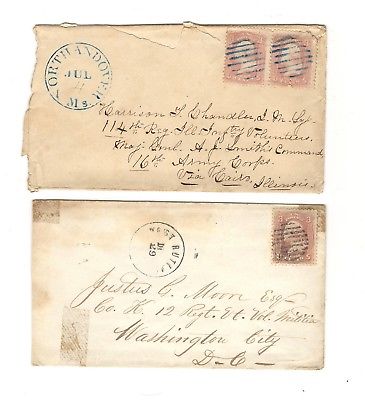 NORTH ANDOVER
JUL
Ms.
Harrison T. Chandler, S. M. Sgt.
114th Reg. Ill. Inf'ty Volunteers
Maj. Genl. A. J. Smith's Command
16th Army Corps.
Via Cairo,
Illinois.
WEST RUTLA
29
Justus G. Moon Esq
Co. K. 12 Regt. Vt. Vol. Militia
Washington City
D-C-